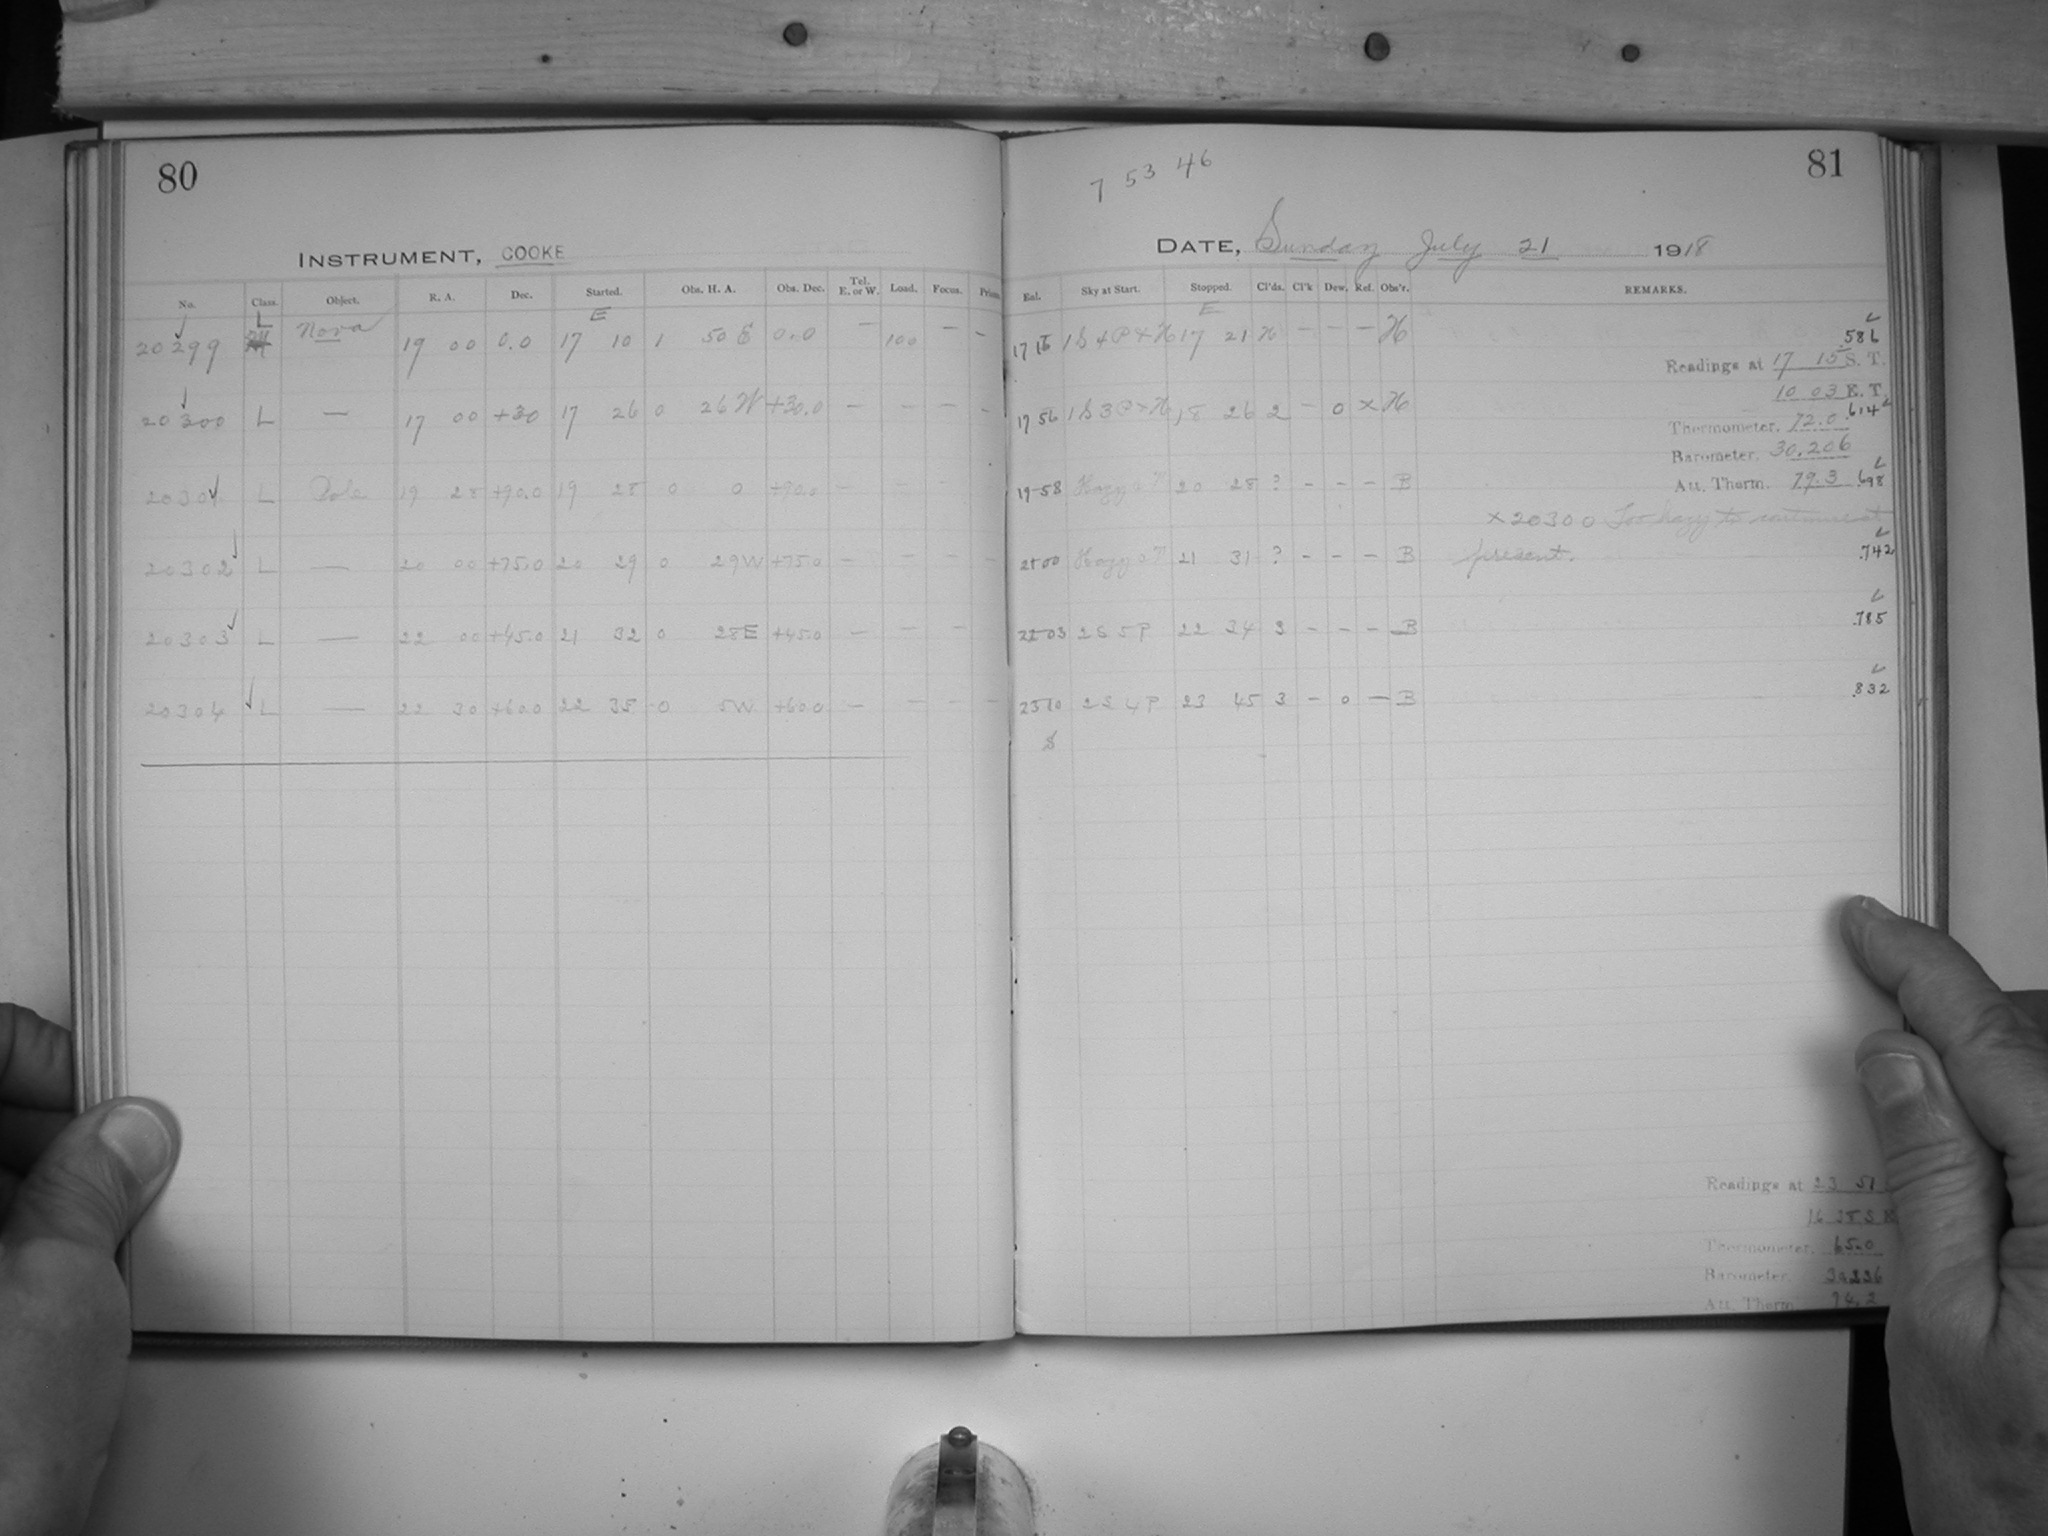 80
INSTRUMENT, COOKE
No. Class. Object. R. A. Dec. Started. Obs. H. A. Obs. Dec. Tel. E. or W. Load. Focus. Prism
L E
20299 Nova 19 00 0.0 17 10 1 50 E 0.0 — 100 — —
20300 L — 17 00 +30 17 26 0 26 W +30.0 — — — —
20301 L Pole 19 28 +90.0 19 28 0 0 +90.0 — — — —
20302 L — 20 00 +75.0 20 29 0 29W +75.0 — — — —
20303 L — 22 00 +45.0 21 32 0 28E +45.0 — — — —
20304 L — 22 30 +60.0 22 35 0 5W +60.0 — — — —
7 53 46
81
DATE, Sunday July 21 1918
Eal. Sky at Start. Stopped. Cl'ds. Cl'k Dew. Ref. Obs'r. REMARKS.
E
17 1S 4P+H 17 21 H — — — H .586
Readings at 17 15 S. T.
10 03 E. T.
17 56 1S 3P+H 18 26 2 — 0 × H .614
Thermometer, 72.0
Barometer, 30.206
19 58 Hazy 20 28 ? — — — B Att. Therm. 79.3 .698
×20300 Too hazy to continue at
21 00 Hazy 21 31 ? — — — B present. .742
22 03 2S 5P 22 34 3 — — — B .785
23 10 2S 4P 23 45 3 — 0 — B .832
S
Readings at 23 51
16 38 S
Thermometer, 65.0
Barometer,
Att. Therm. 74.2